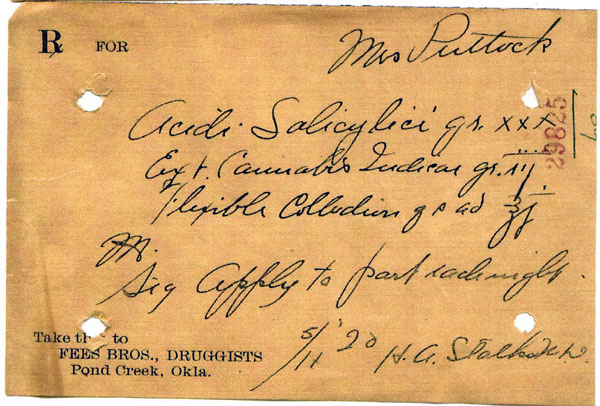 ℞ FOR
Mrs Puttock
Acidi Salicylici gr. xxx
Ext. Cannabis Indicae gr.
Flexible Collodion q s ad ℥j
M.
Sig Apply to part each night.
5/11 '20
H. A.
29825
Take this to
FEES BROS., DRUGGISTS
Pond Creek, Okla.